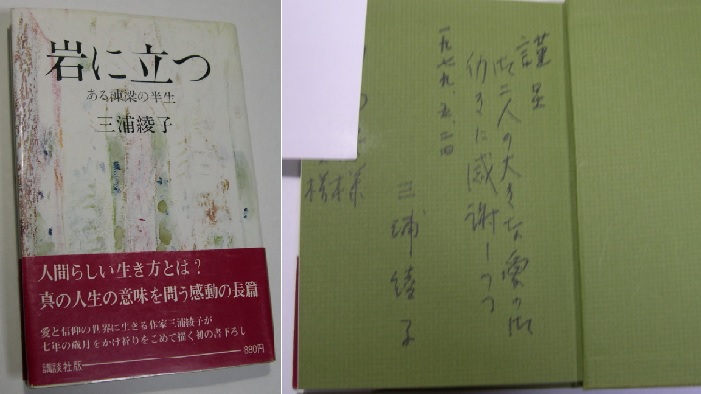 岩に立つ
ある棟梁の半生
三浦綾子
人間らしい生き方とは?
真の人生の意味を問う感動の長篇
愛と信仰の世界に生きる作家三浦綾子が
七年の歳月をかけ祈りをこめて描く初の書下ろし
講談社版
880円
謹呈
御二人の大きな愛の御
働きに感謝しつつ
一九七九、五、二四
三浦綾子
様
様